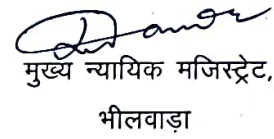 मुख्य न्यायिक मजिस्ट्रेट,
भीलवाड़ा